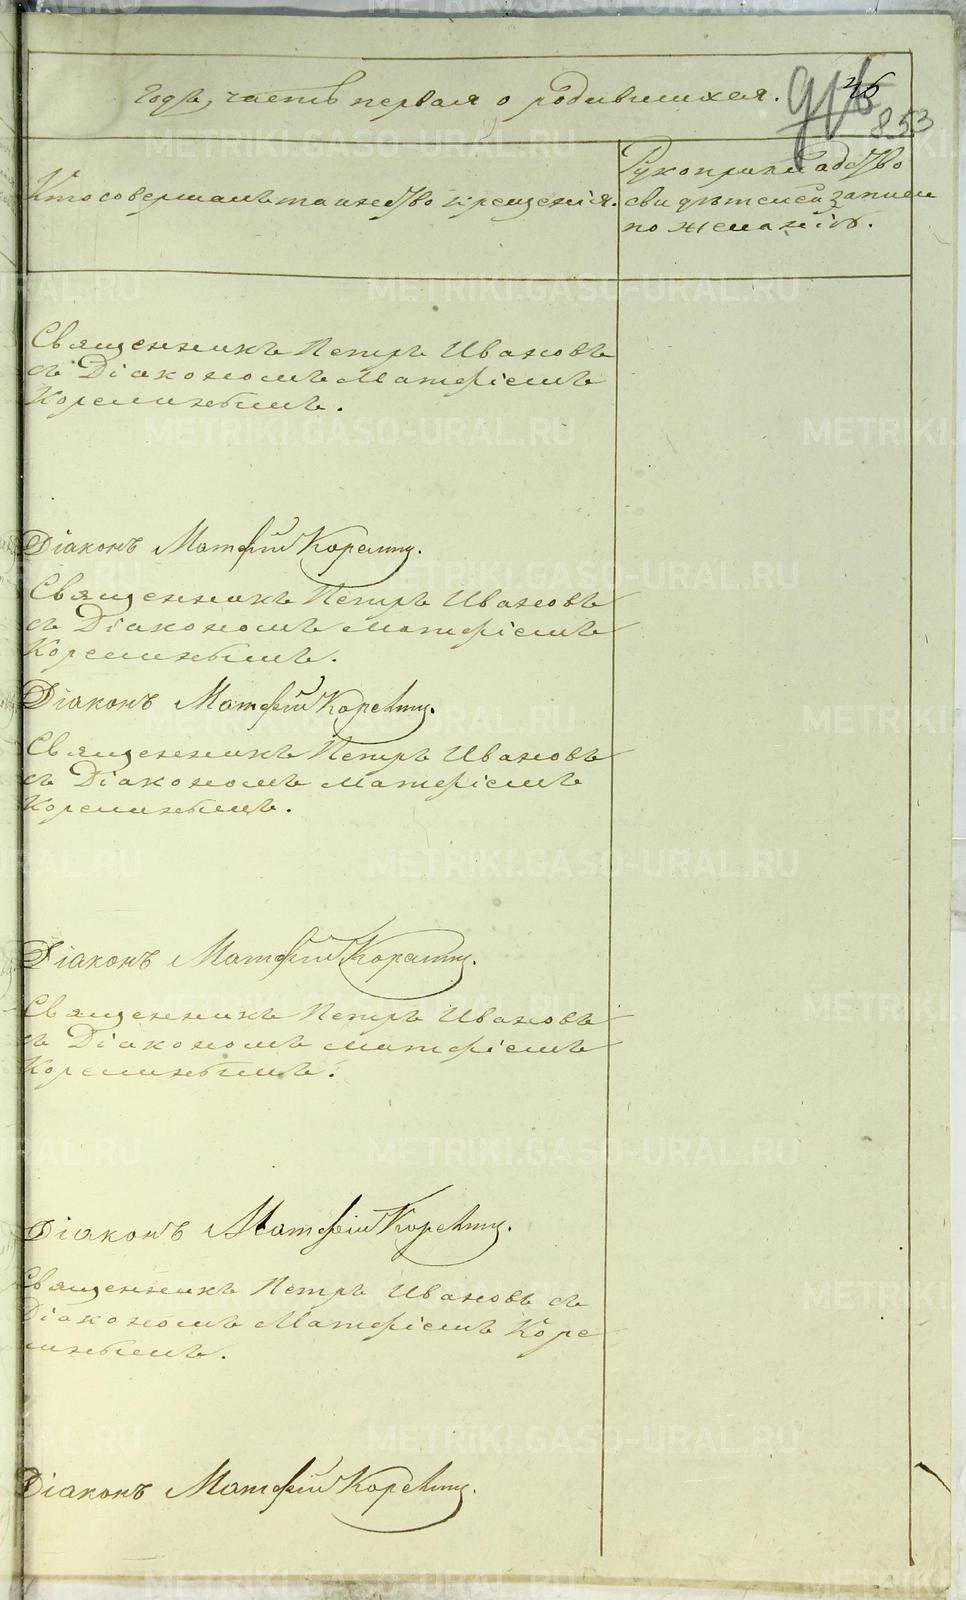 Года, часть первая о родившихся.
46
853
Кто совершалъ таинство крещенія.
Рукоприкладство
свидѣтелей записи
по желанію.
Священникъ Петръ Ивановъ
съ Діакономъ Матфіемъ
Корелинымъ.
Діаконъ Матфій Корелинъ.
Священникъ Петръ Ивановъ
съ Діакономъ Матфіемъ
Корелинымъ.
Діаконъ Матфій Корелинъ.
Священникъ Петръ Ивановъ
съ Діакономъ Матфіемъ
Корелинымъ.
Діаконъ Матфій Корелинъ.
Священникъ Петръ Ивановъ
съ Діакономъ Матфіемъ
Корелинымъ.
Діаконъ Матфій Корелинъ.
Священникъ Петръ Ивановъ съ
Діакономъ Матфіемъ Коре
линымъ.
Діаконъ Матфій Корелинъ.
METRIKI.GASO-URAL.RU